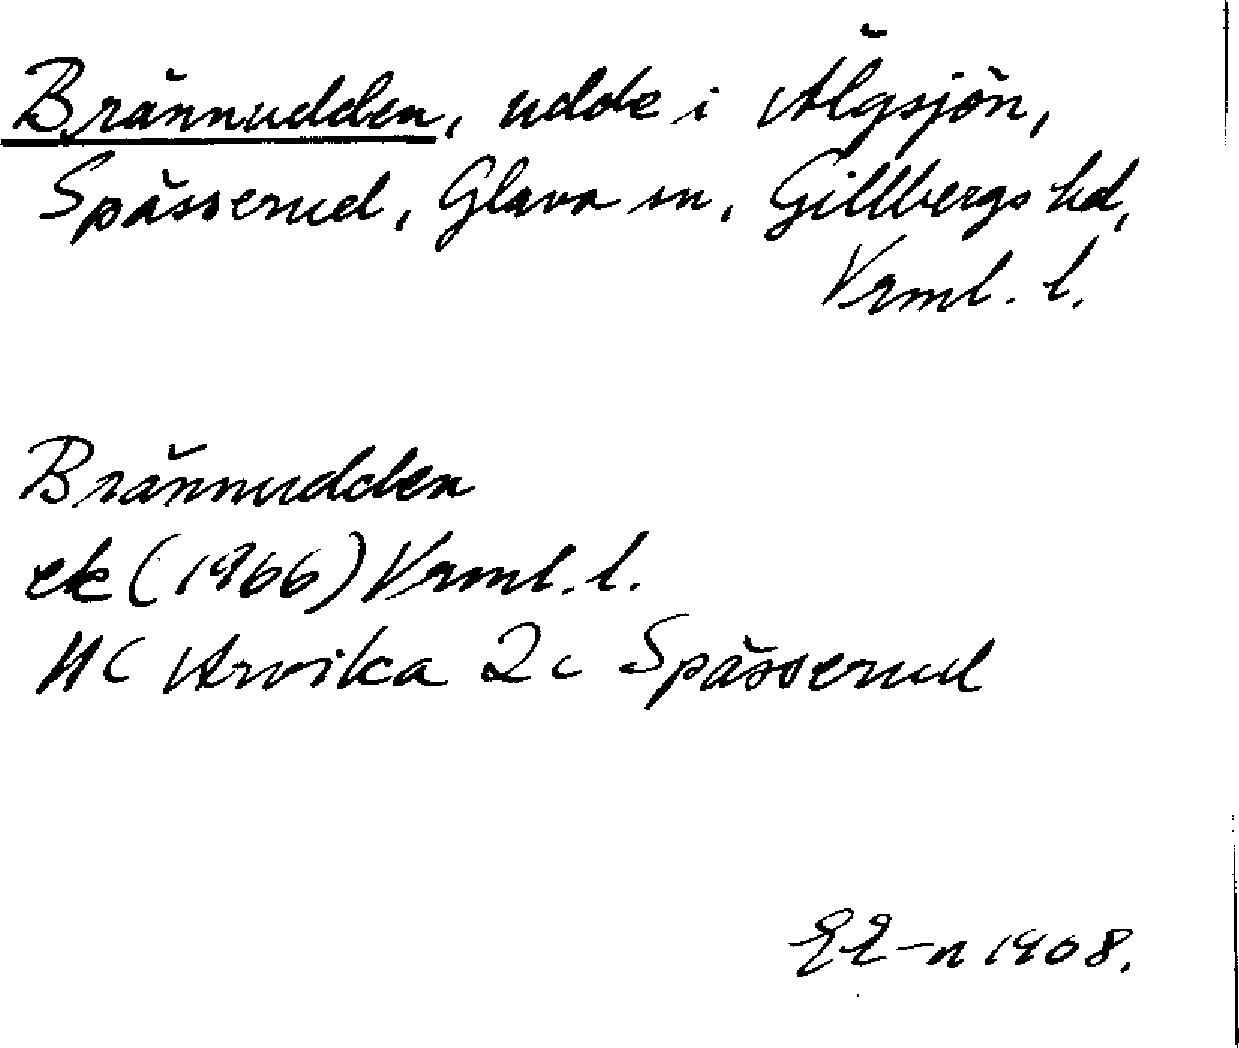 Brännudden, udde i Älgsjön,
Spässerud, Glava sn, Gillbergs hd,
Vrml. l.
Brännudden
ek (1966) Vrml. l.
NC Arvika 2c Spässerud
EE-n 1968.